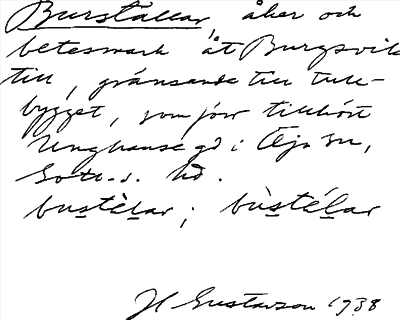 Burställar, åker och
betesmark åt Burgsvik
till, gränsande till tull-
bygget, som förr tillhört
Unghanse gd i Öja sn,
Gotl. s. hd.
bustèlar; bùstélar
H Gustavson 1938